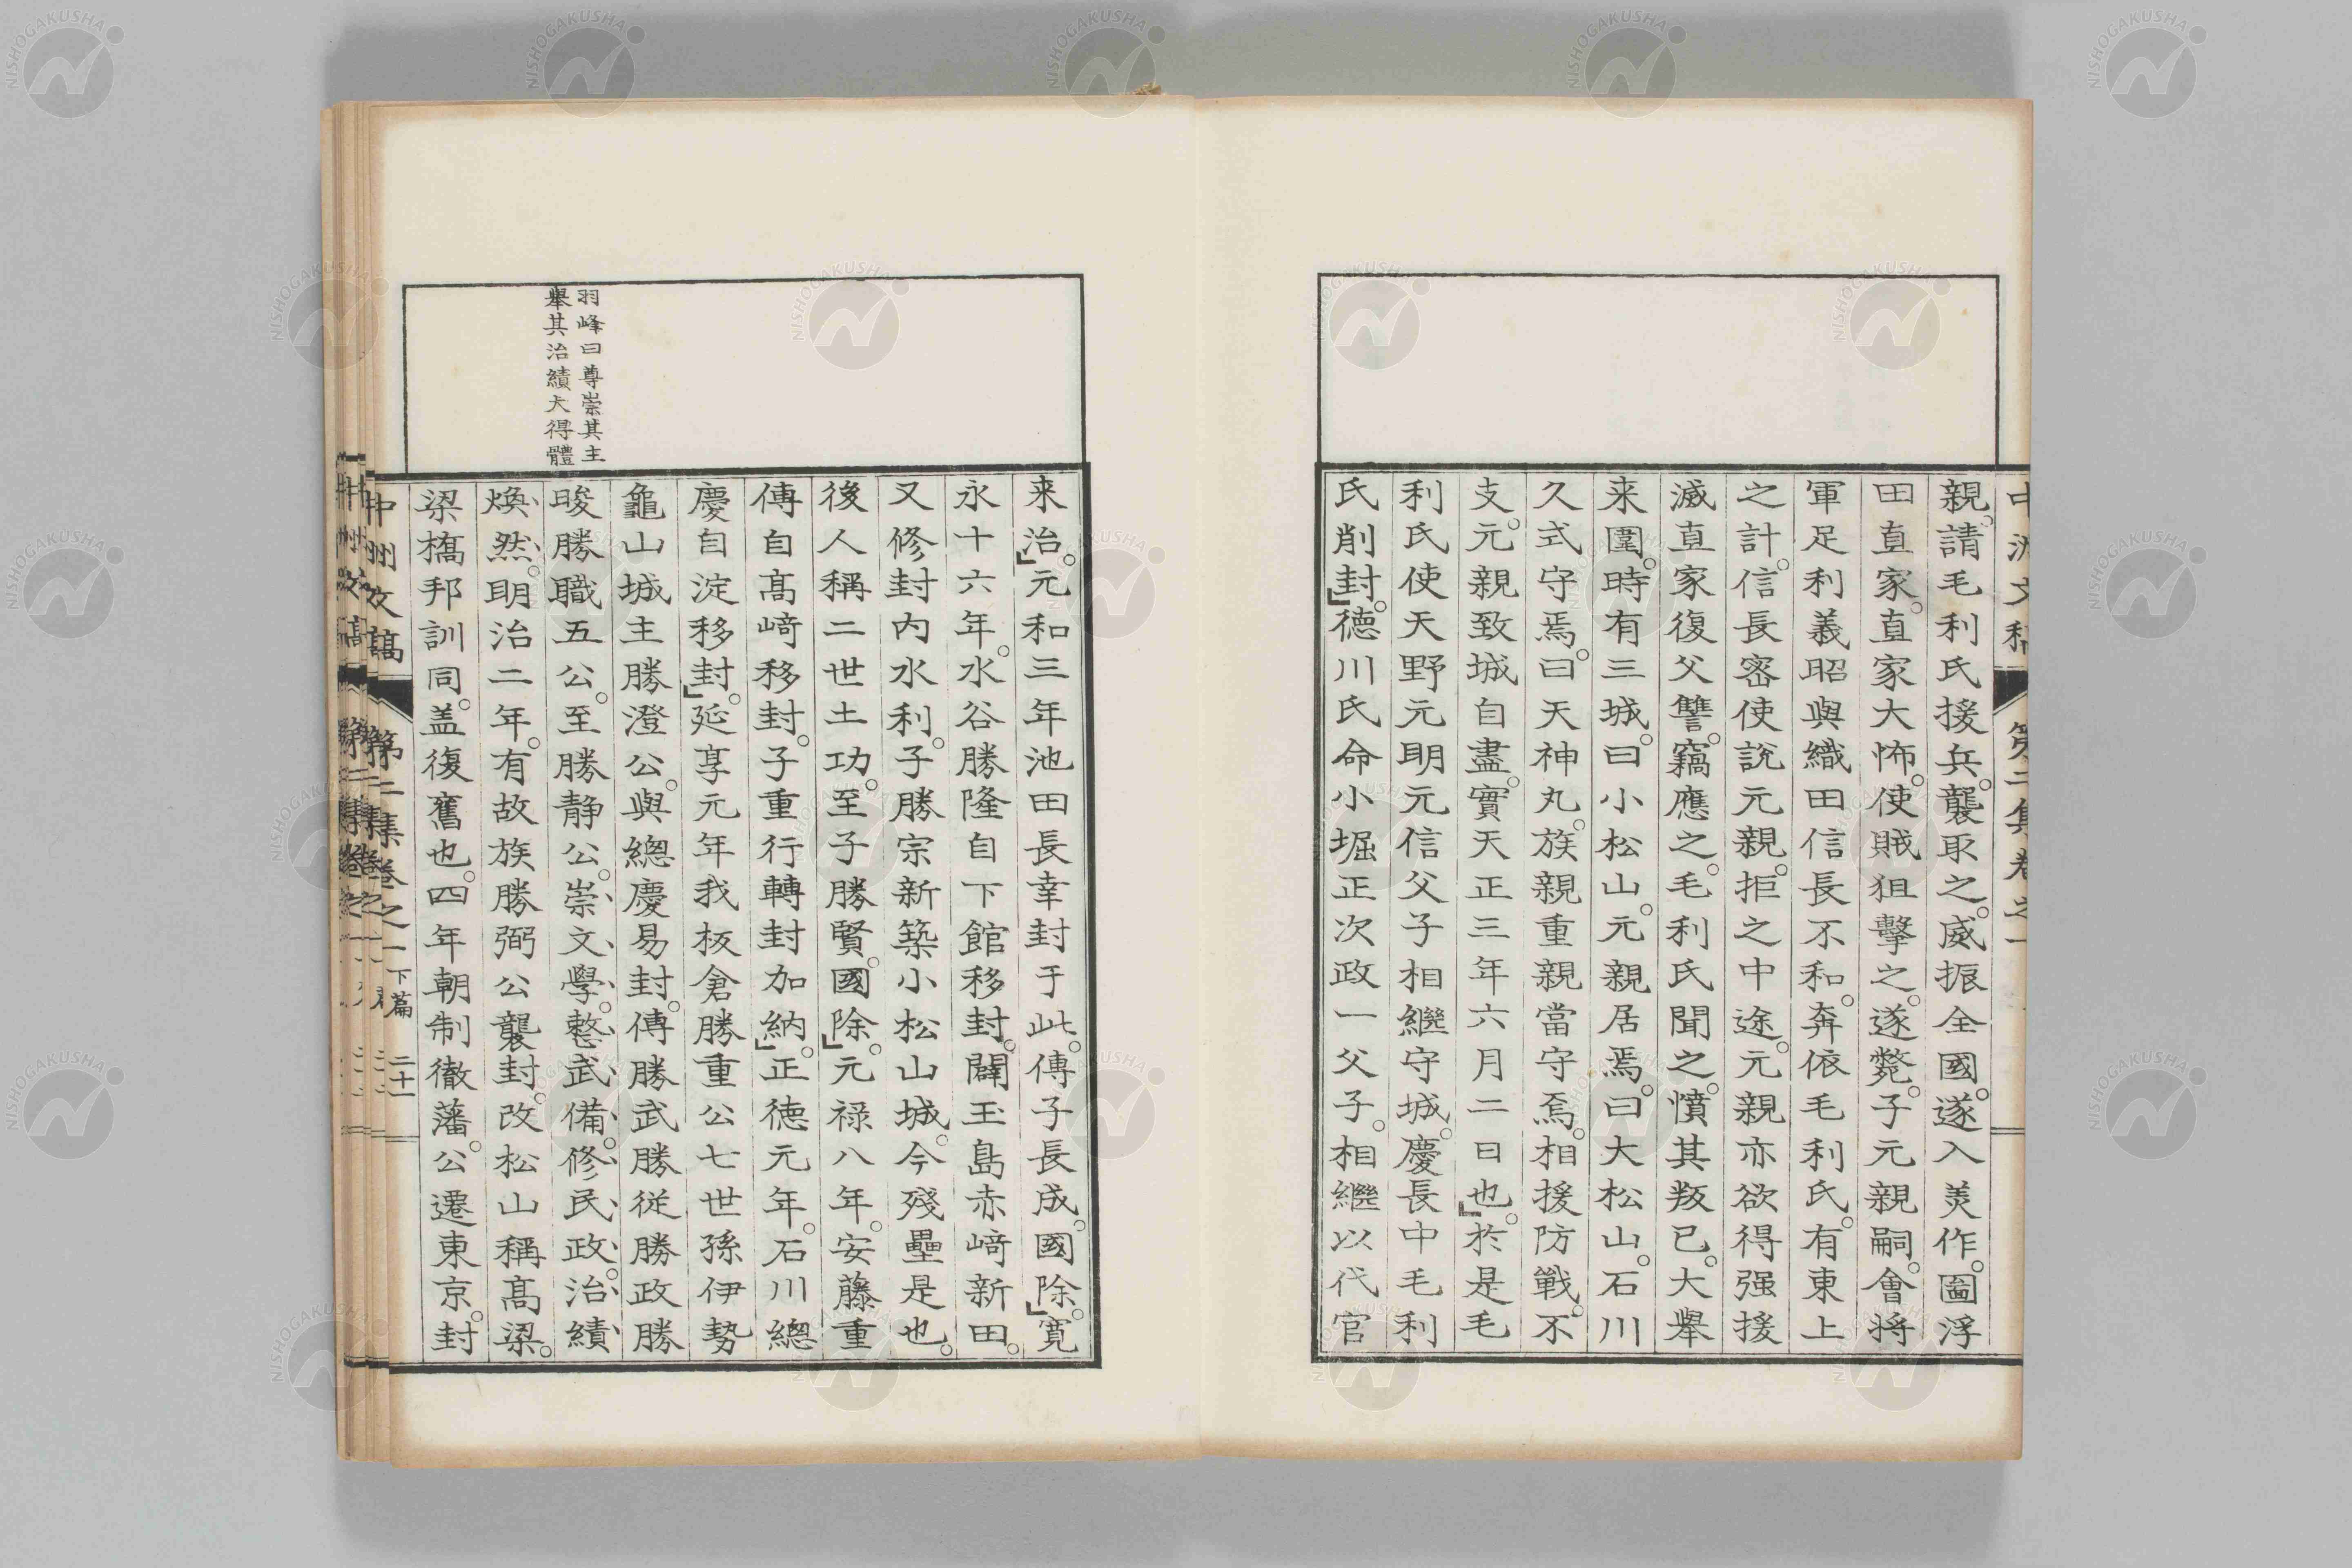 親。請毛利氏援兵。襲取之。威振全國。遂入美作。圖浮
田直家。直家大怖。使賊狙擊之。遂斃。子元親嗣。會將
軍足利義昭與織田信長不和。奔依毛利氏。有東上
之計。信長密使說元親。拒之中途。元親亦欲得强援
滅直家復父讐。竊應之。毛利氏聞之。憤其叛已。大舉
来圍。時有三城。曰小松山。元親居焉。曰大松山。石川
久式守焉。曰天神丸。族親重親當守焉。相援防戰。不
支。元親致城自盡。實天正三年六月二日也。」於是毛
利氏使天野元明元信父子相繼守城。慶長中毛利
氏削封。」德川氏命小堀正次政一父子。相繼以代官
来治。」元和三年池田長幸封于此。傳子長成。國除。」寬
永十六年。水谷勝隆自下館移封。闢玉島赤﨑新田。
又修封内水利。子勝宗新築小松山城。今殘壘是也。
後人稱二世土功。至子勝賢。國除。」元禄八年。安藤重
傳自髙﨑移封。子重行轉封加納。」正德元年。石川總
慶自淀移封。」延享元年我板倉勝重公七世孫伊勢
龜山城主勝澄公。與總慶易封。傳勝武勝從勝政勝
晙勝職五公。至勝静公。崇文學。整武備。修民政。治績
煥然。明治二年。有故族勝弼公襲封。改松山稱髙梁。
梁槗邦訓同。盖復舊也。四年朝制徹藩。公遷東京。封
羽峰曰尊崇其主
舉其治績大得體
中州文稿
第二集卷之一
下篇
二十一
NISHOGAKUSHA